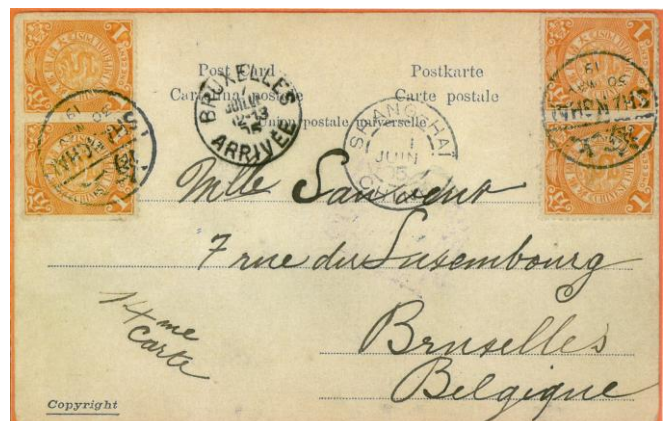 Post Card Postkarte
Cartolina postale Carte postale
Union postale universelle
BRUXELLES
JUIL
12-13
05
ARRIVÉE
SHANG-HAI
1
JUIN
05
SHANGHAI
SHANGHAI
1
1
1
1
Mlle
7 rue du Luxembourg
Bruxelles
Belgique
14me
Carte
Copyright